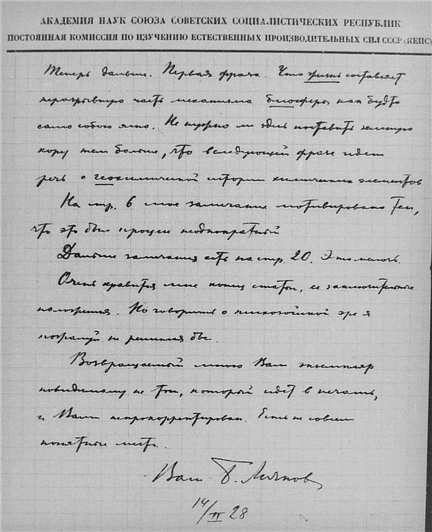 АКАДЕМИЯ НАУК СОЮЗА СОВЕТСКИХ СОЦИАЛИСТИЧЕСКИХ РЕСПУБЛИК
ПОСТОЯННАЯ КОМИССИЯ ПО ИЗУЧЕНИЮ ЕСТЕСТВЕННЫХ ПРОИЗВОДИТЕЛЬНЫХ СИЛ СССР (КЕПС)
Теперь дальше. Первая фраза. Что жизнь составляет
неразрывную часть механизма биосферы как будто
само собою ясно. Не нужно ли здесь поставить земную
кору тем больше, что в следующей фразе идет
речь о геохимической истории химических элементов
На стр. 6 мое замечание мотивировано тем,
что это был процесс неоднократный
Дальше замечания есть на стр. 20. Это мелочь.
Очень нравится мне конец статьи, ее заключительные
положения. Но говорить о психозойской эре я
пожалуй не решился бы.
Возвращаемый мною Вам экземпляр
повидимому не тот, который идет в печать,
и Вами непрокорректирован. Есть не совсем
понятные места.
Ваш Б. Личков
14/II 28